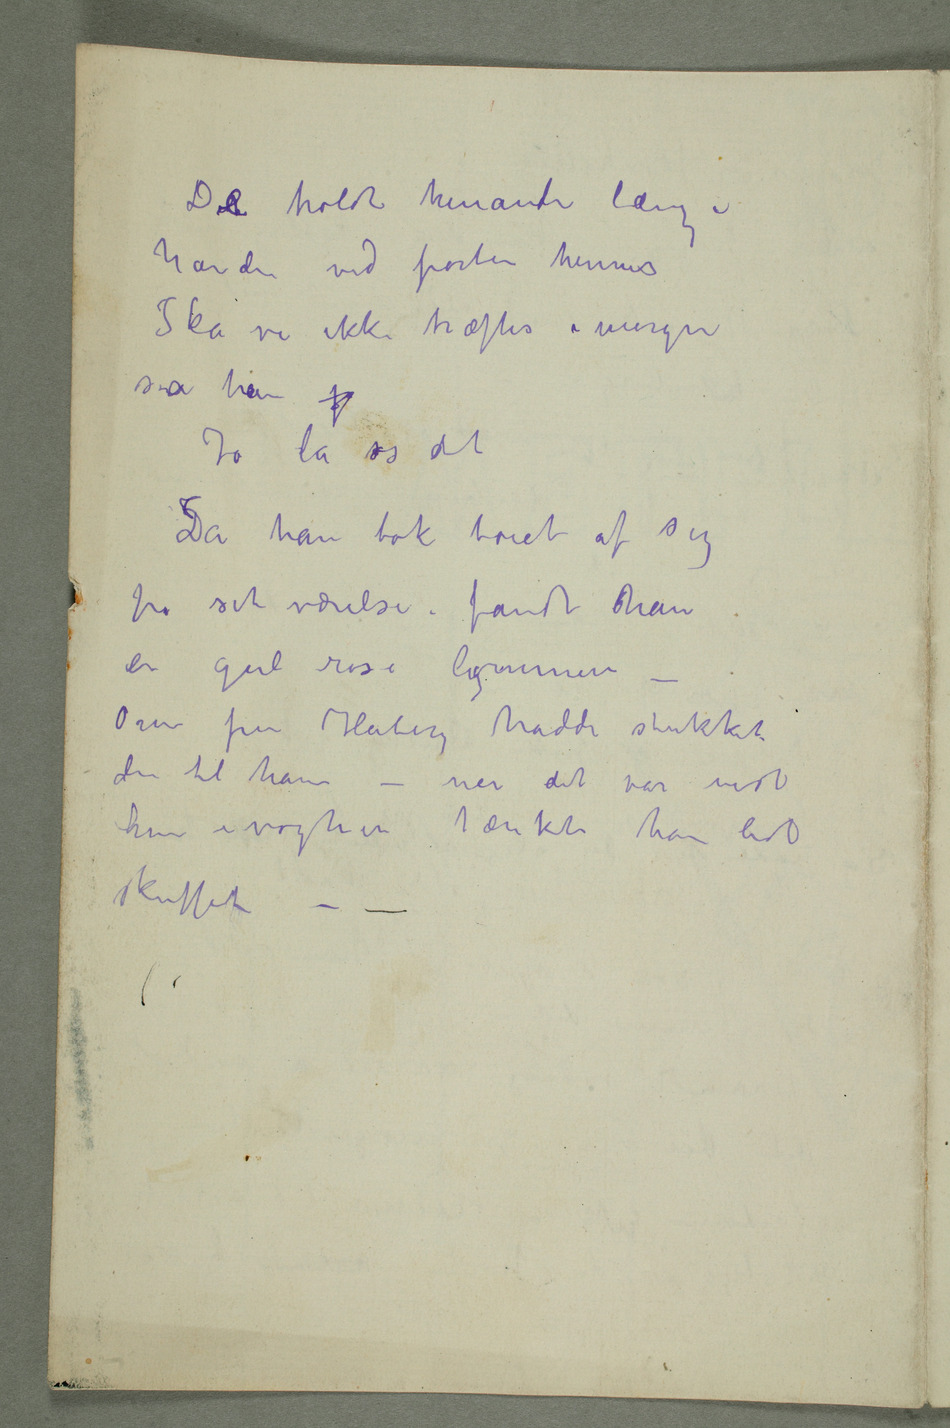 De holdt hinanden længe i
hænder ved porten hennes
Ska vi ikke træffes imorgen
sa han
Jo la os det
Da han tok tøiet af sig
på sit værelse. fandt han
en gul rose i lommen —
fru Heiberg hadde stukket
den til ham — når det var vidst
kun i vognen tænkte han lidt
skuffet – —